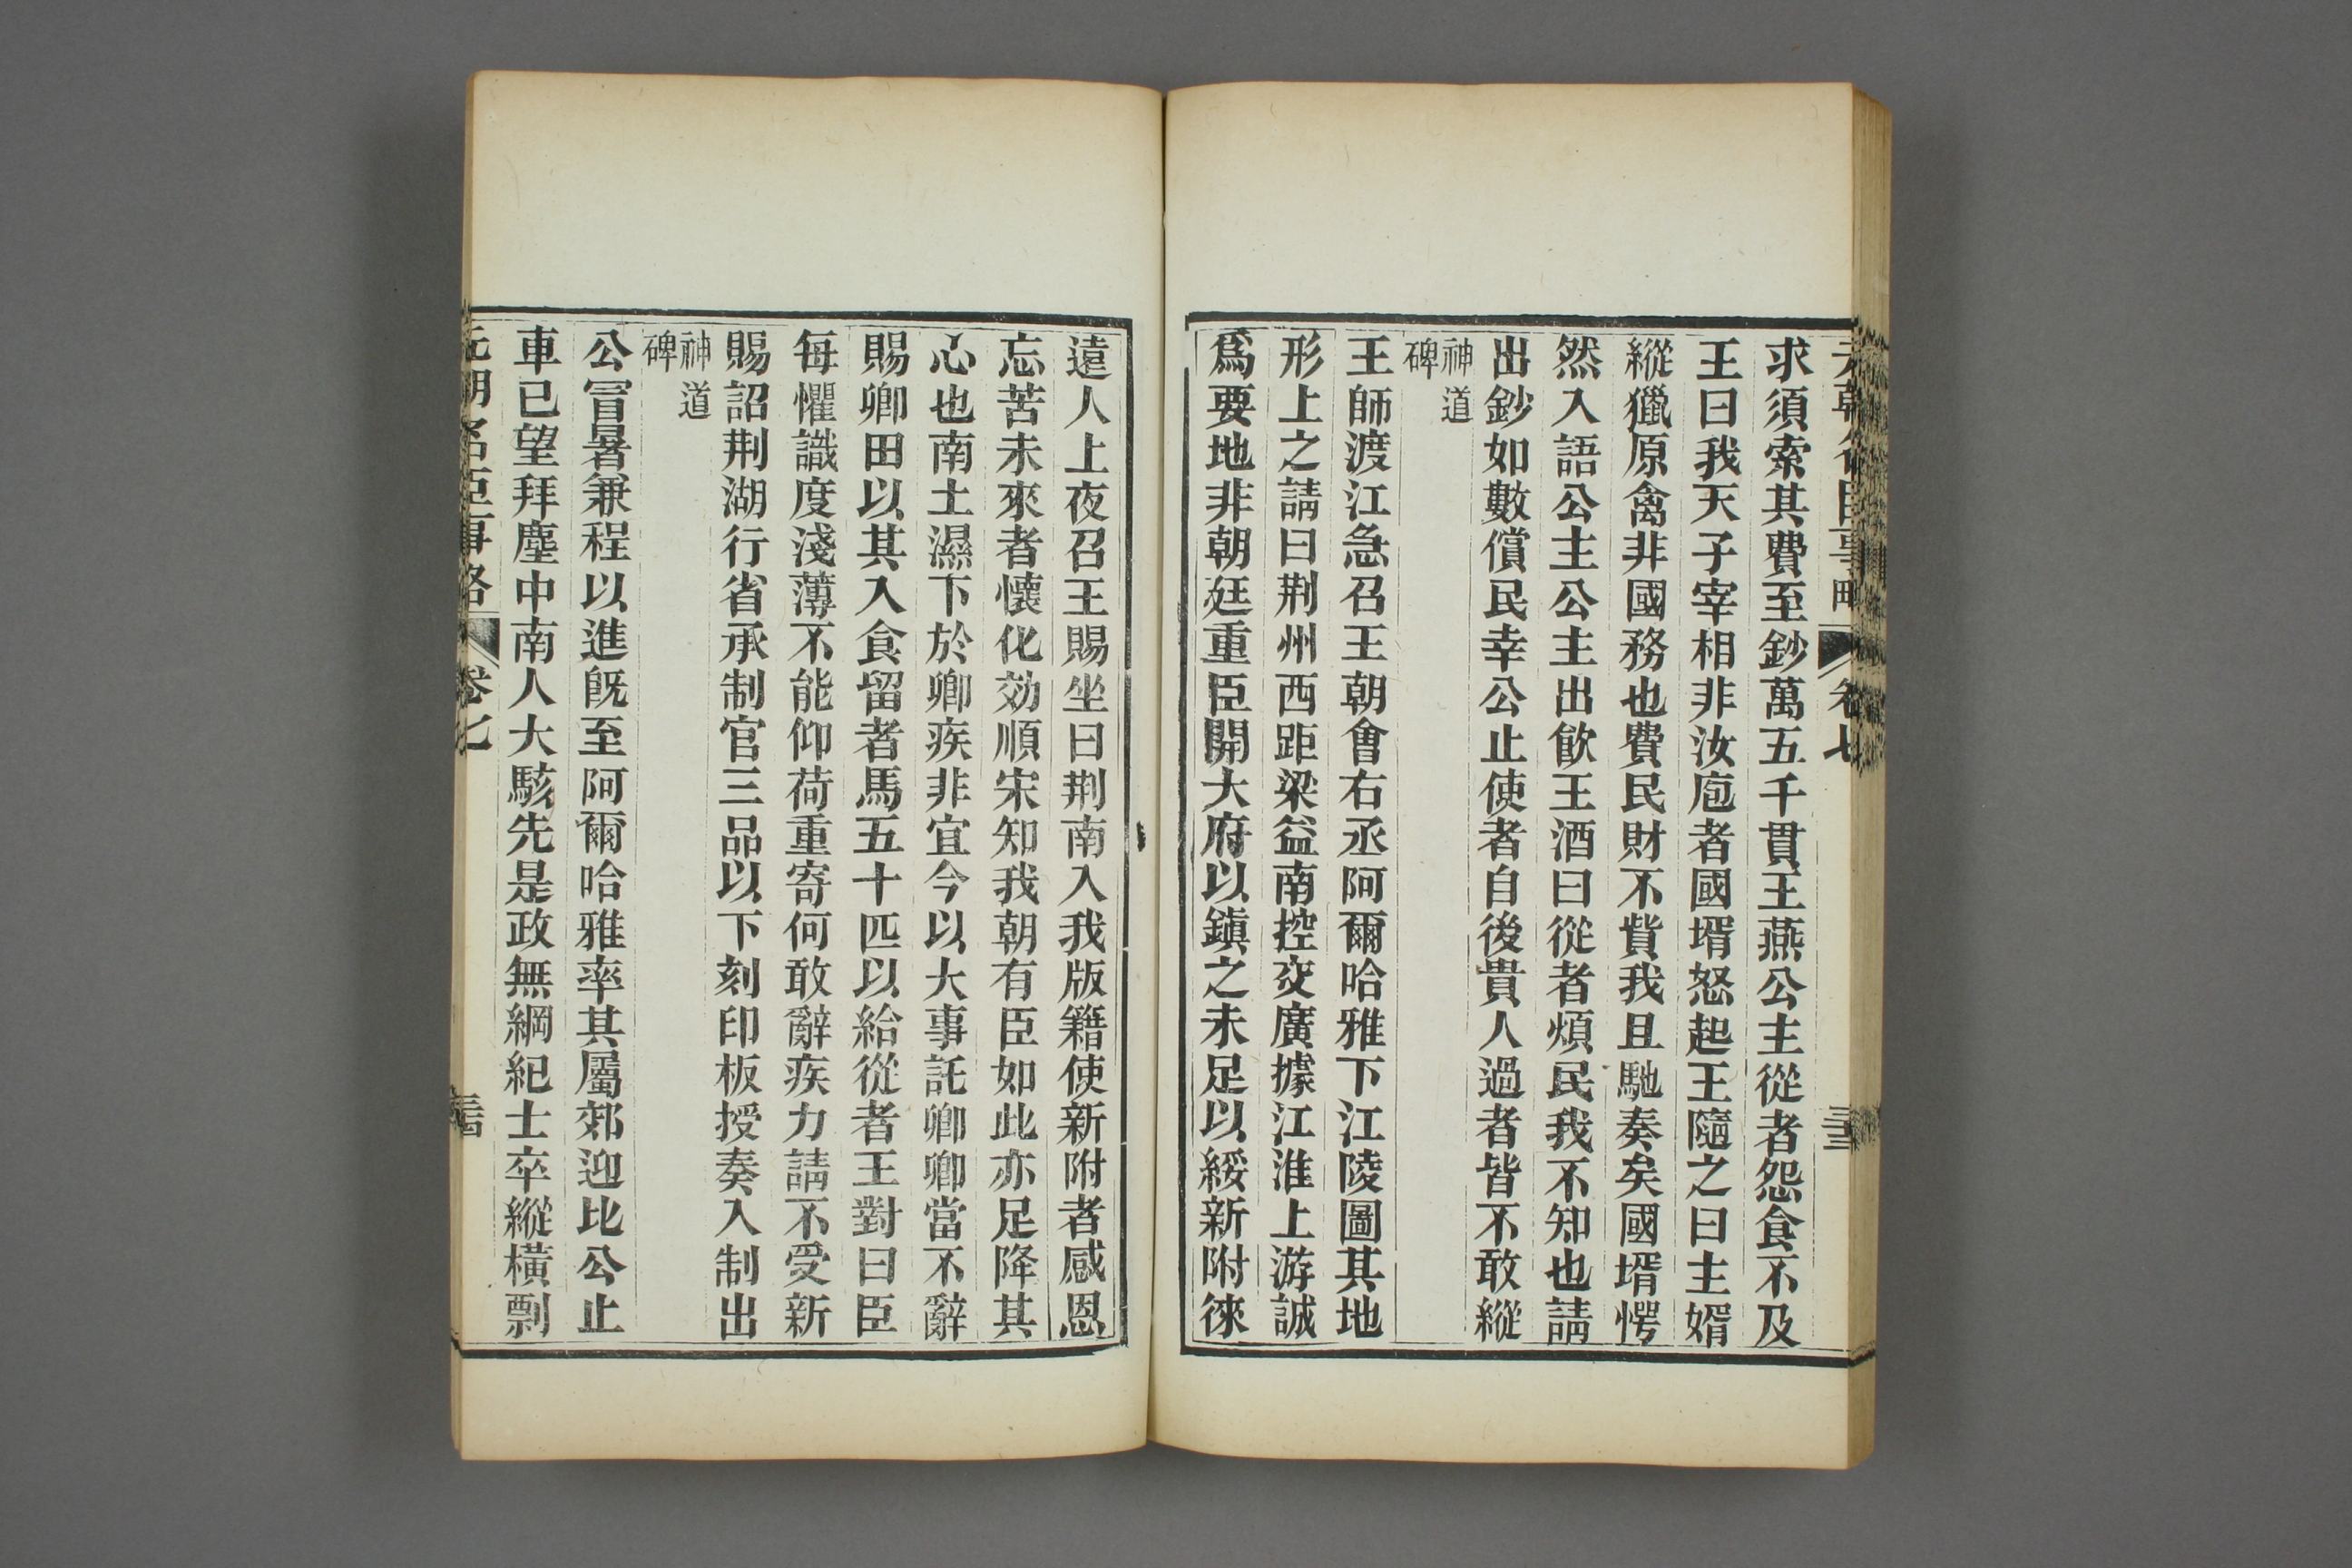 求須索其費至鈔萬五千貫王燕公主從者怨食不及
王曰我天子宰相非汝庖者國壻怒起王隨之曰主婿
縱獵原禽非國務也費民財不貲我且馳奏矣國壻愕
然入語公主公主出飮王酒曰從者煩民我不知也請
出鈔如數償民幸公止使者自後貴人過者皆不敢縱
神道
碑
王師渡江急召王朝會右丞阿爾哈雅下江陵圖其地
形上之請曰荆州西距梁益南控交廣據江淮上游誠
爲要地非朝廷重臣開大府以鎮之未足以綏新附徠
遠人上夜召王賜坐曰荆南入我版籍使新附者感恩
忘苦未來者懷化効順宋知我朝有臣如此亦足降其
心也南土濕下於卿疾非宜今以大事託卿卿當不辭
賜卿田以其入食留者馬五十匹以給從者王對曰臣
每懼識度淺薄不能仰荷重寄何敢辭疾力請不受新
賜詔荆湖行省承制官三品以下刻印板授奏入制出
神道
碑
公冒暑兼程以進旣至阿爾哈雅率其屬郊迎比公止
車已望拜塵中南人大駭先是政無綱紀士卒縱橫剽
元朝名臣事略 卷七